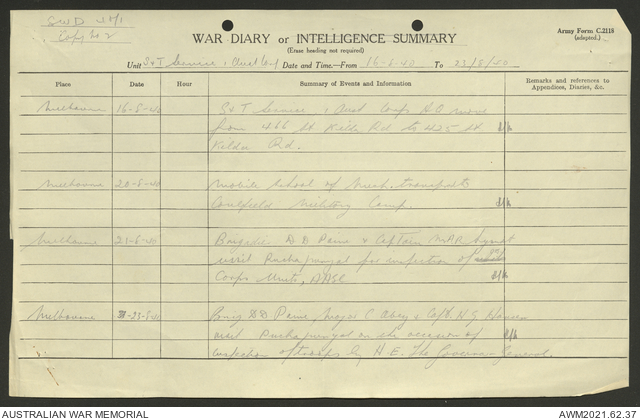 SWD
Copy No 2
Army Form C.2118
(adapted.)
WAR DIARY or INTELLIGENCE SUMMARY
(Erase heading not required)
Unit S & T Service, Aust Corps Date and Time.—From 16-8-40 To 23/8/40
Place Date Hour Summary of Events and Information Remarks and references to
Appendices, Diaries, &c.
Melbourne 16-8-40 S & T Service, Aust Corps H.Q move
from 466 St Kilda Rd to 425 St
Kilda Rd.
Melbourne 20-8-40 Mobile School of Mech. transport to
Caulfield Military Camp.
Melbourne 21-8-40 Brigadier D D Paine & Captain M.A.R.
visit Puckapunyal for inspection of
Corps Units, AASC
Melbourne 23-8-40 Brig DD Paine, Major C & Capt. H G
visit Puckapunyal on the occasion of
inspection of troops by H.E. The Governor General.
AUSTRALIAN WAR MEMORIAL
AWM2021.62.37